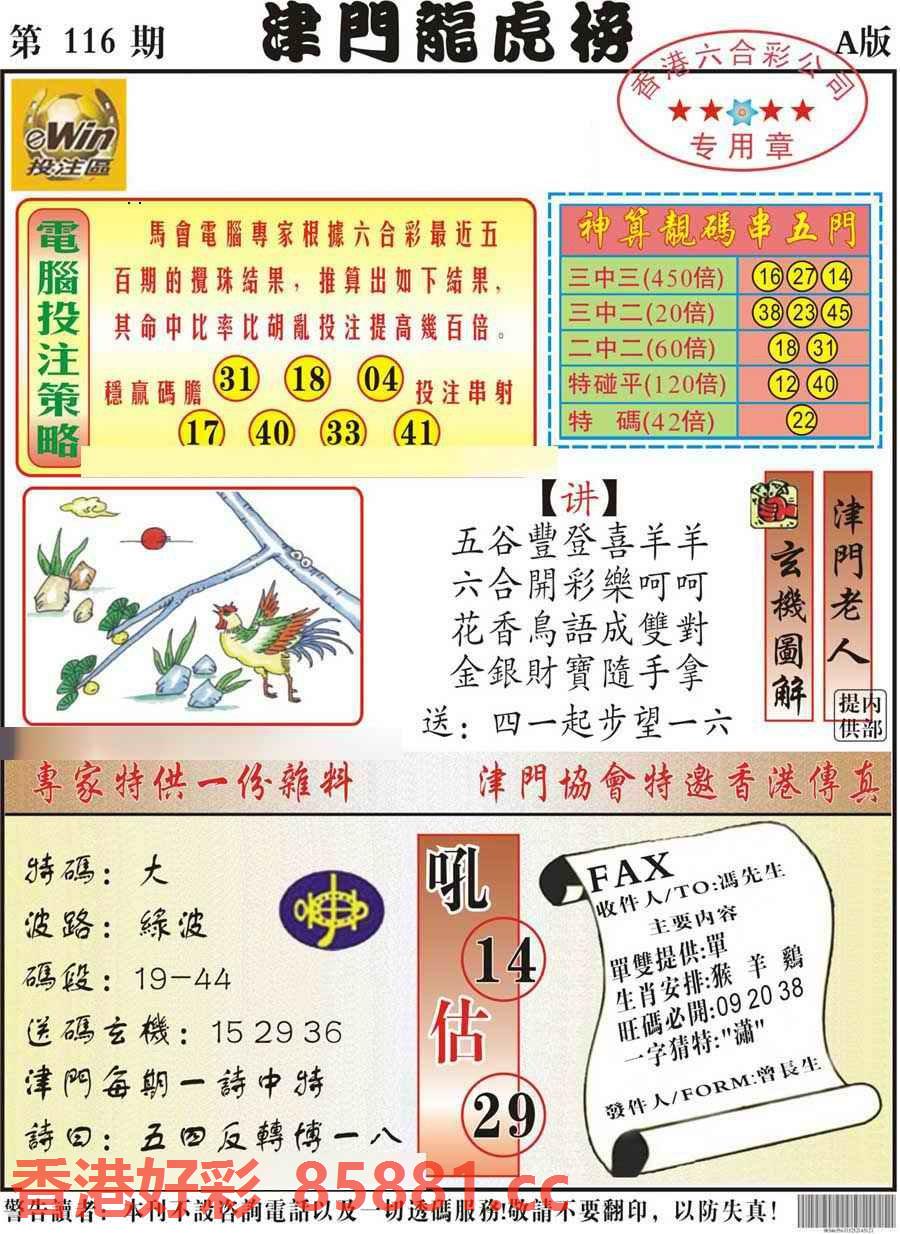 第 116 期
津門龍虎榜
A版
香港六合彩公司
★★★★
专用章
eWin
投注區
電腦投注策略
馬會電腦專家根據六合彩最近五
百期的攪珠結果，推算出如下結果，
其命中比率比胡亂投注提高幾百倍。
穩贏碼膽 31 18 04 投注串射
17 40 33 41
神算靚碼串五門
三中三(450倍) 16 27 14
三中二(20倍) 38 23 45
二中二(60倍) 18 31
特碰平(120倍) 12 40
特 碼(42倍) 22
【讲】
五谷豐登喜羊羊
六合開彩樂呵呵
花香鳥語成雙對
金銀財寶隨手拿
送：四一起步望一六
玄機圖解
津門老人
内部提供
專家特供一份雜料
津門協會特邀香港傳真
特碼：大
波路：綠波
碼段：19-44
送碼玄機：15 29 36
津門每期一詩中特
詩曰：五四反轉博一八
吼
14
估
29
FAX
收件人/TO:馮先生
主要内容
單雙提供:單
生肖安排:猴 羊 鷄
旺碼必開:09 20 38
一字猜特:"瀟"
發件人/FORM:曾長生
香港好彩 85881.cc
警告讀者：本刊不設咨詢電話以及一切透碼服務!敬請不要翻印，以防失真!